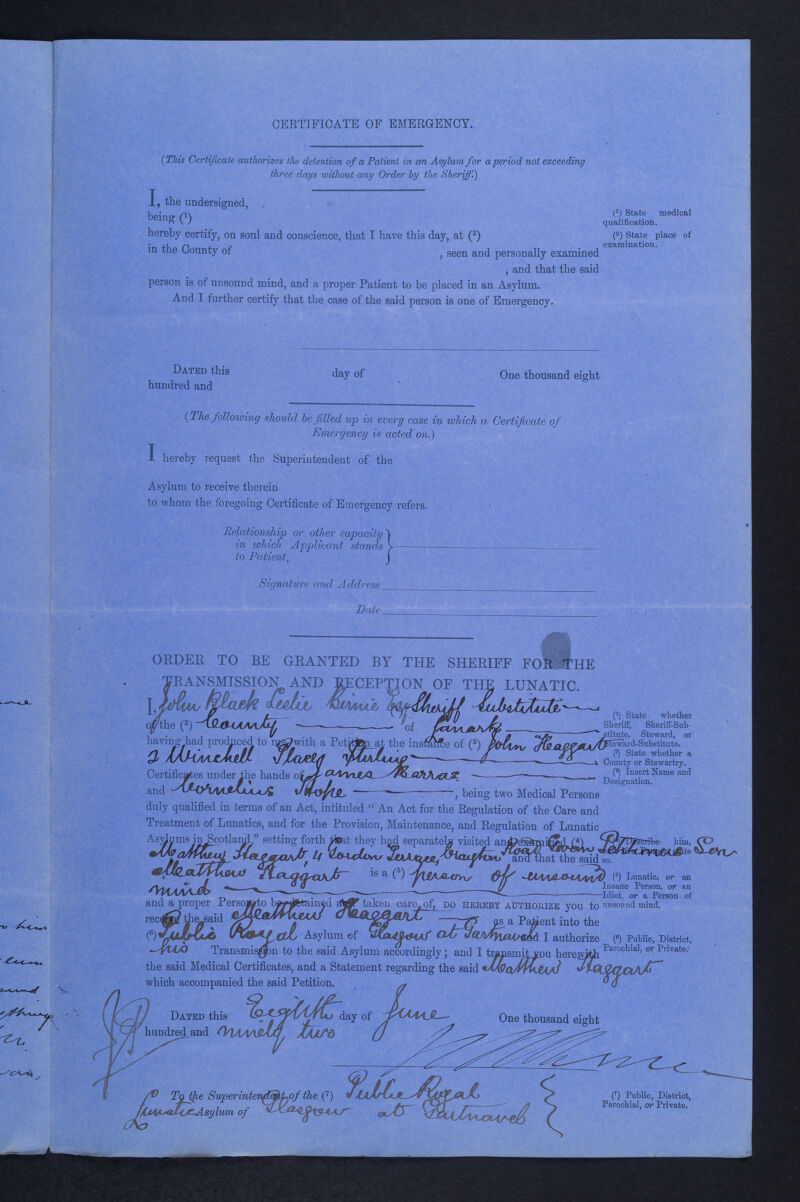 CERTIFICATE OF EMERGENCY.
(This Certificate authorizes the detention of a Patient in an Asylum for a period not exceeding
three days without any Order by the Sheriff.)
I, the undersigned,
being (¹)
(¹) State medical
qualification.
hereby certify, on soul and conscience, that I have this day, at (²)
(²) State place of
examination.
in the County of , seen and personally examined
, and that the said
person is of unsound mind, and a proper Patient to be placed in an Asylum.
And I further certify that the case of the said person is one of Emergency.
DATED this day of One thousand eight
hundred and
(The following should be filled up in every case in which a Certificate of
Emergency is acted on.)
I hereby request the Superintendent of the
Asylum to receive therein
to whom the foregoing Certificate of Emergency refers.
Relationship or other capacity
in which Applicant stands
to Patient,
Signature and Address
Date
ORDER TO BE GRANTED BY THE SHERIFF FOR THE
TRANSMISSION AND RECEPTION OF THE LUNATIC.
I, John Black Leslie Birnie Esq (¹) Sheriff Substitute
(¹) State whether
Sheriff, Sheriff-Sub-
stitute, Steward, or
Steward-Substitute.
of the (²) County of Lanark
(²) State whether a
County or Stewartry.
having had produced to me with a Petition at the instance of (³) John Haggart
(³) Insert Name and
Designation.
2 Winchell Place Stirling
Certificates under the hands of James
and Cornelius Hope , being two Medical Persons
duly qualified in terms of an Act, intituled “An Act for the Regulation of the Care and
Treatment of Lunatics, and for the Provision, Maintenance, and Regulation of Lunatic
Asylums in Scotland,” setting forth that they had separately visited and examined (⁴)
Matthew Haggart, 4 Gordon Terrace, Craigton Road, Govan
and that the said
Matthew Haggart is a (⁵) person of unsound
(⁵) Lunatic, or an
Insane Person, or an
Idiot, or a Person of
unsound mind.
mind
and a proper Person to be detained and taken care of, DO HEREBY AUTHORIZE you to
receive the said Matthew Haggart as a Patient into the
(⁶) Public Royal Asylum of Glasgow at Gartnavel and I authorize
(⁶) Public, District,
Parochial, or Private.
his Transmission to the said Asylum accordingly; and I transmit you herewith
the said Medical Certificates, and a Statement regarding the said Matthew Haggart
which accompanied the said Petition.
DATED this Eighth day of June One thousand eight
hundred and ninety two
To the Superintendent of the (⁷) Public Royal
(⁷) Public, District,
Parochial, or Private.
Lunatic Asylum of Glasgow at Gartnavel